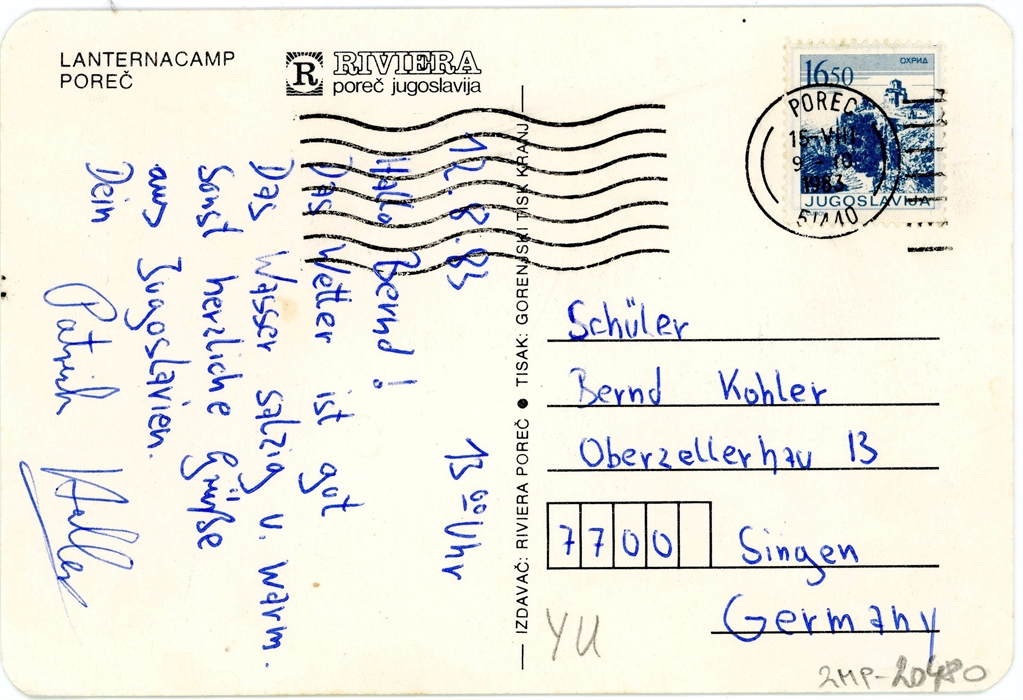 LANTERNACAMP
POREČ
R RIVIERA
poreč jugoslavija
12.8.83 13 00 Uhr
Hallo Bernd!
Das Wetter ist gut
Das Wasser salzig u. warm.
Sonst herzliche Grüße
aus Jugoslavien.
Dein
Patrick
Haller
IZDAVAČ: RIVIERA POREČ ● TISAK: GORENJSKI TISK KRANJ
ОХРИД
1650
JUGOSLAVIJA
POREČ
15-VIII
1983
51440
Schüler
Bernd Kohler
Oberzellerhau 13
7700 Singen
Germany
YU
2MP-20480